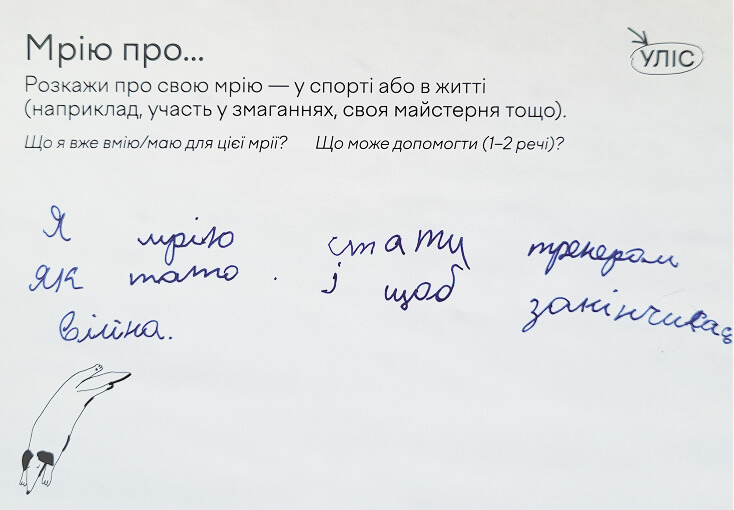 Мрію про...
УЛІС
Розкажи про свою мрію — у спорті або в житті
(наприклад, участь у змаганнях, своя майстерня тощо).
Що я вже вмію/маю для цієї мрії? Що може допомогти (1–2 речі)?
Я мрію стати тренером
як тато. і щоб
війна.